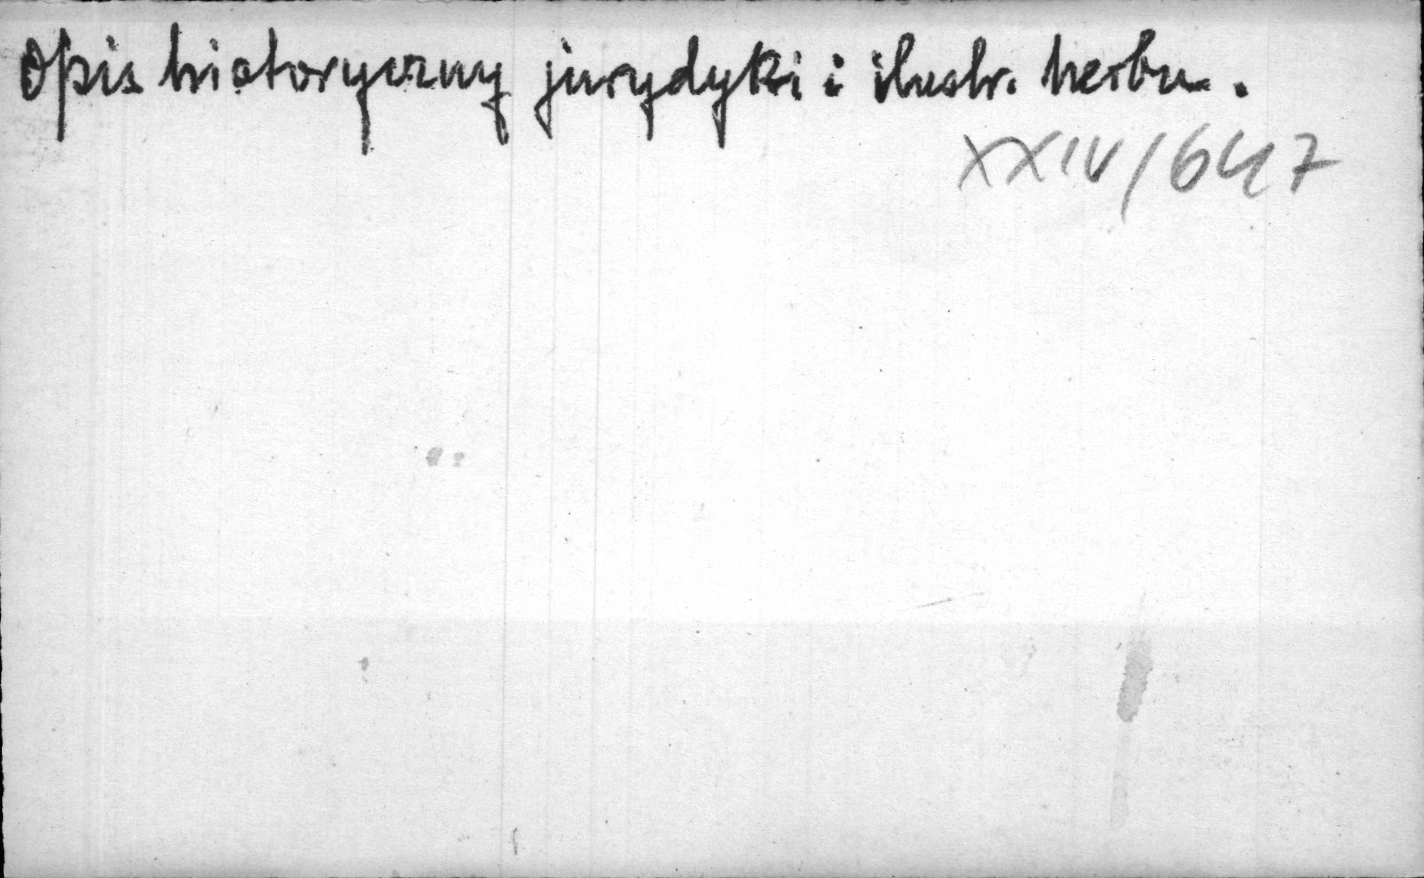 Opis historyczny jurydyki i ilustr. herbu.
XXIV/647